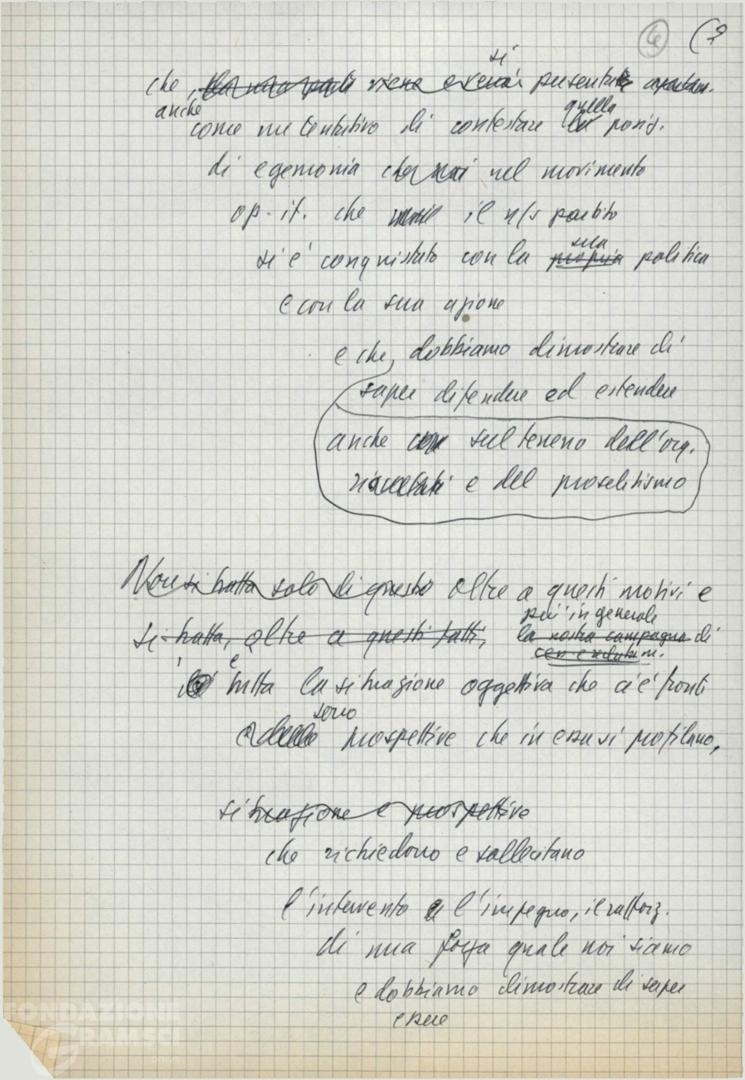 6 (7
si
che, viene presenta apertam.
anche quella
come un tentativo di contestare la posiz.
di egemonia nel movimento
op. it. che il n/s partito
sua
si è conquistato con la propria politica
e con la sua azione
e che, dobbiamo dimostrare di
saper difendere ed estendere
anche sul terreno dell'org.
e del proselitismo
Non si tratta solo di questo oltre a questi motivi e
più in generale
si tratta, oltre a questi fatti, la nostra campagna di
è tutta la situazione oggettiva che ci è fronti
sono
prospettive che in essa si profilano,
situazione e prospettive
che richiedono e sollecitano
l'intervento e l'impegno, il rafforz.
di una forza quale noi siamo
e dobbiamo dimostrare di saper
essere
FONDAZIONE
GRAMSCI